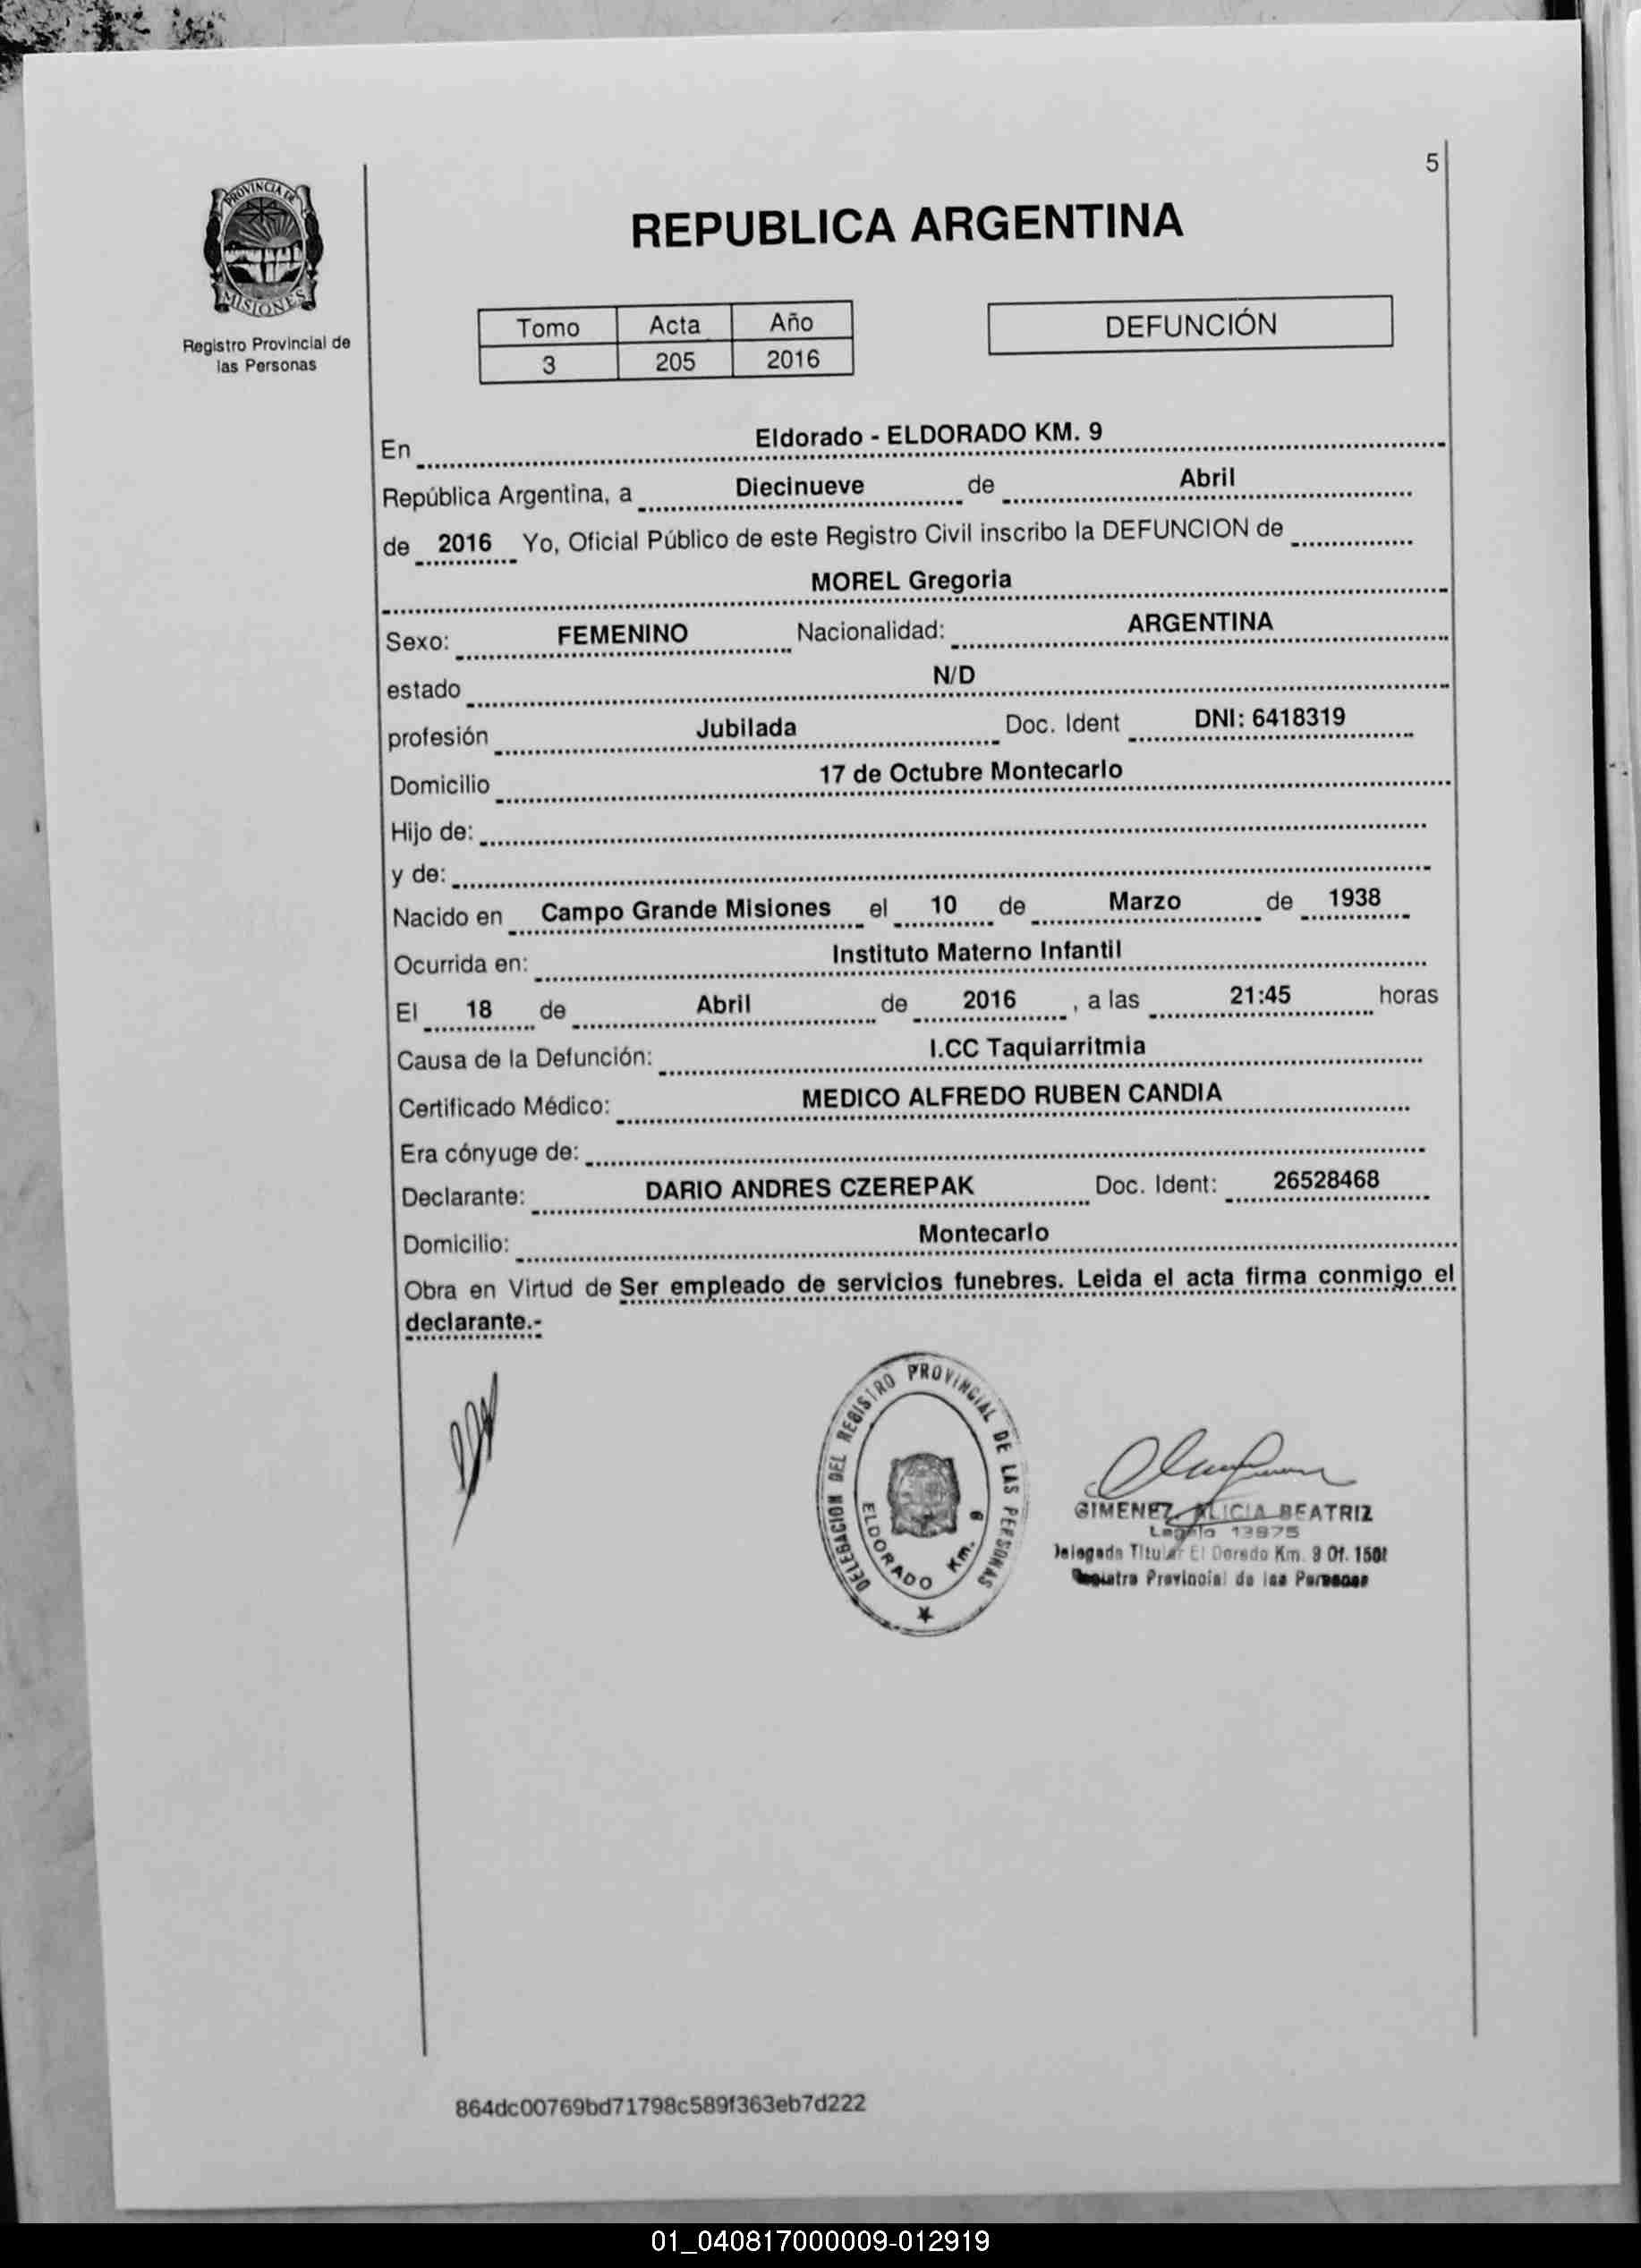 5
PROVINCIA DE
MISIONES
Registro Provincial de
las Personas
REPUBLICA ARGENTINA
Tomo Acta Año
3 205 2016
DEFUNCIÓN
En Eldorado - ELDORADO KM. 9
República Argentina, a Diecinueve de Abril
de 2016 Yo, Oficial Público de este Registro Civil inscribo la DEFUNCION de
MOREL Gregoria
Sexo: FEMENINO Nacionalidad: ARGENTINA
estado N/D
profesión Jubilada Doc. Ident DNI: 6418319
Domicilio 17 de Octubre Montecarlo
Hijo de:
y de:
Nacido en Campo Grande Misiones el 10 de Marzo de 1938
Ocurrida en: Instituto Materno Infantil
El 18 de Abril de 2016 , a las 21:45 horas
Causa de la Defunción: I.CC Taquiarritmia
Certificado Médico: MEDICO ALFREDO RUBEN CANDIA
Era cónyuge de:
Declarante: DARIO ANDRES CZEREPAK Doc. Ident: 26528468
Domicilio: Montecarlo
Obra en Virtud de Ser empleado de servicios funebres. Leida el acta firma conmigo el
declarante.-
DELEGACION DEL REGISTRO PROVINCIAL DE LAS PERSONAS
ELDORADO KM. 9
GIMENEZ ALICIA BEATRIZ
Legajo 13975
Delegada Titular El Dorado Km. 9 Of. 1501
Registro Provincial de las Personas
864dc00769bd71798c589f363eb7d222
01_040817000009-012919